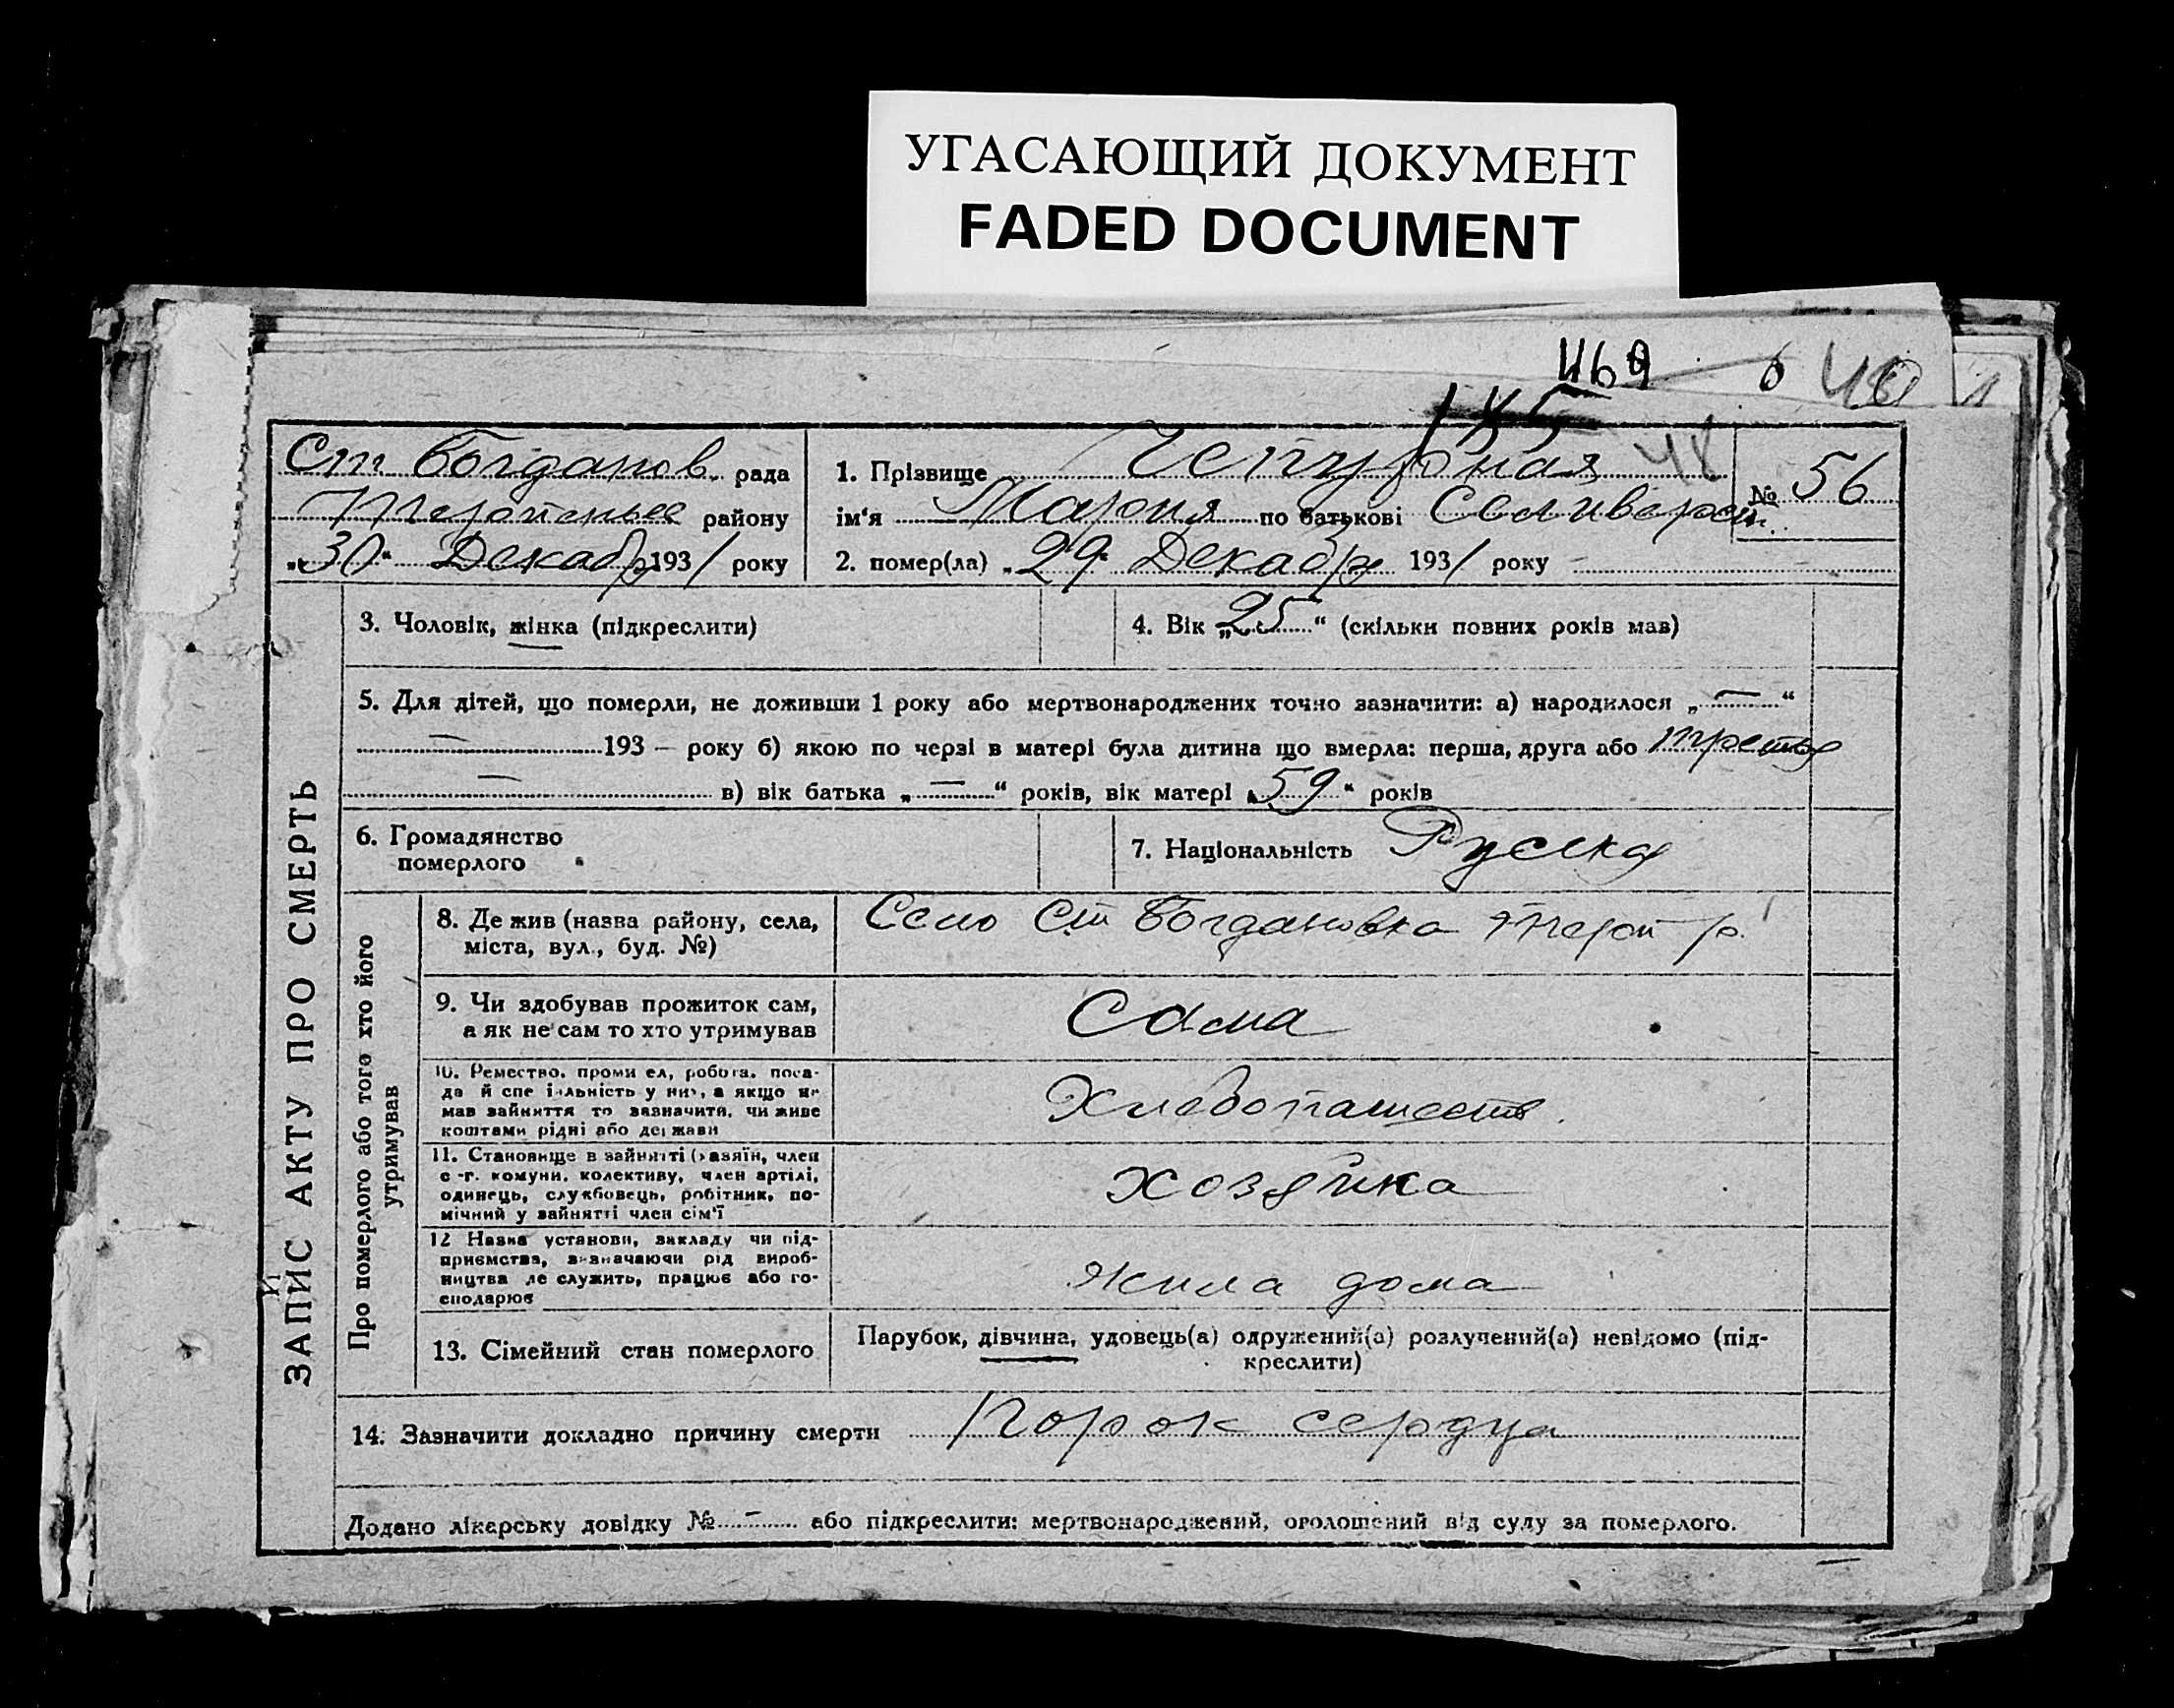 УГАСАЮЩИЙ ДОКУМЕНТ
FADED DOCUMENT
469 40
185
Ст Богданов. рада
районy
„30“ Декабр 1931 року
1. Прізвище Чепурная 48
ім‘я Мария по батькові Селиверст.
№ 56
2. помер(ла) „29“ Декабр 1931 року
ЗАПИС АКТУ ПРО СМЕРТЬ
3. Чоловік, жінка (підкреслити)
4. Вік „25“ (скільки повних років мав)
5. Для дітей, що померли, не доживши 1 року або мертвонароджених точно зазначити: а) народилося „—“
— 193 — року б) якою по черзі в матері була дитина що вмерла: перша, друга або третья
— в) вік батька „—“ років, вік матері „59“ років
6. Громадянство
померлого
7. Національність Руска
Про померлого або того хто його
утримував
8. Де жив (назва району, села,
міста, вул., буд. №)
Село Ст Богдановка р.
9. Чи здобував прожиток сам,
а як не сам то хто утримував
Сама
10. Ремество, промисел, робота, поса-
да й спеціальність у них, а якщо не
мав зайняття то зазначити, чи живе
коштами рідні або держави
Хлебопашеств.
11. Становище в зайнятті (хазяїн, член
с.-г. комуни, колективу, член артілі,
одинець, службовець, робітник, по-
мічний у зайнятті член сім'ї
хозяйка
12 Назва установи, закладу чи під-
приємства, визначаючи рід вироб-
ництва де служить, працює або го-
сподарює
Жила дома
13. Сімейний стан померлого
Парубок, дівчина, удовець(а) одружений(а) розлучений(а) невідомо (під-
креслити)
14. Зазначити докладно причину смерти Порок сердца
Додано лікарську довідку № — або підкреслити: мертвонароджений, оголошений від суду за померлого.